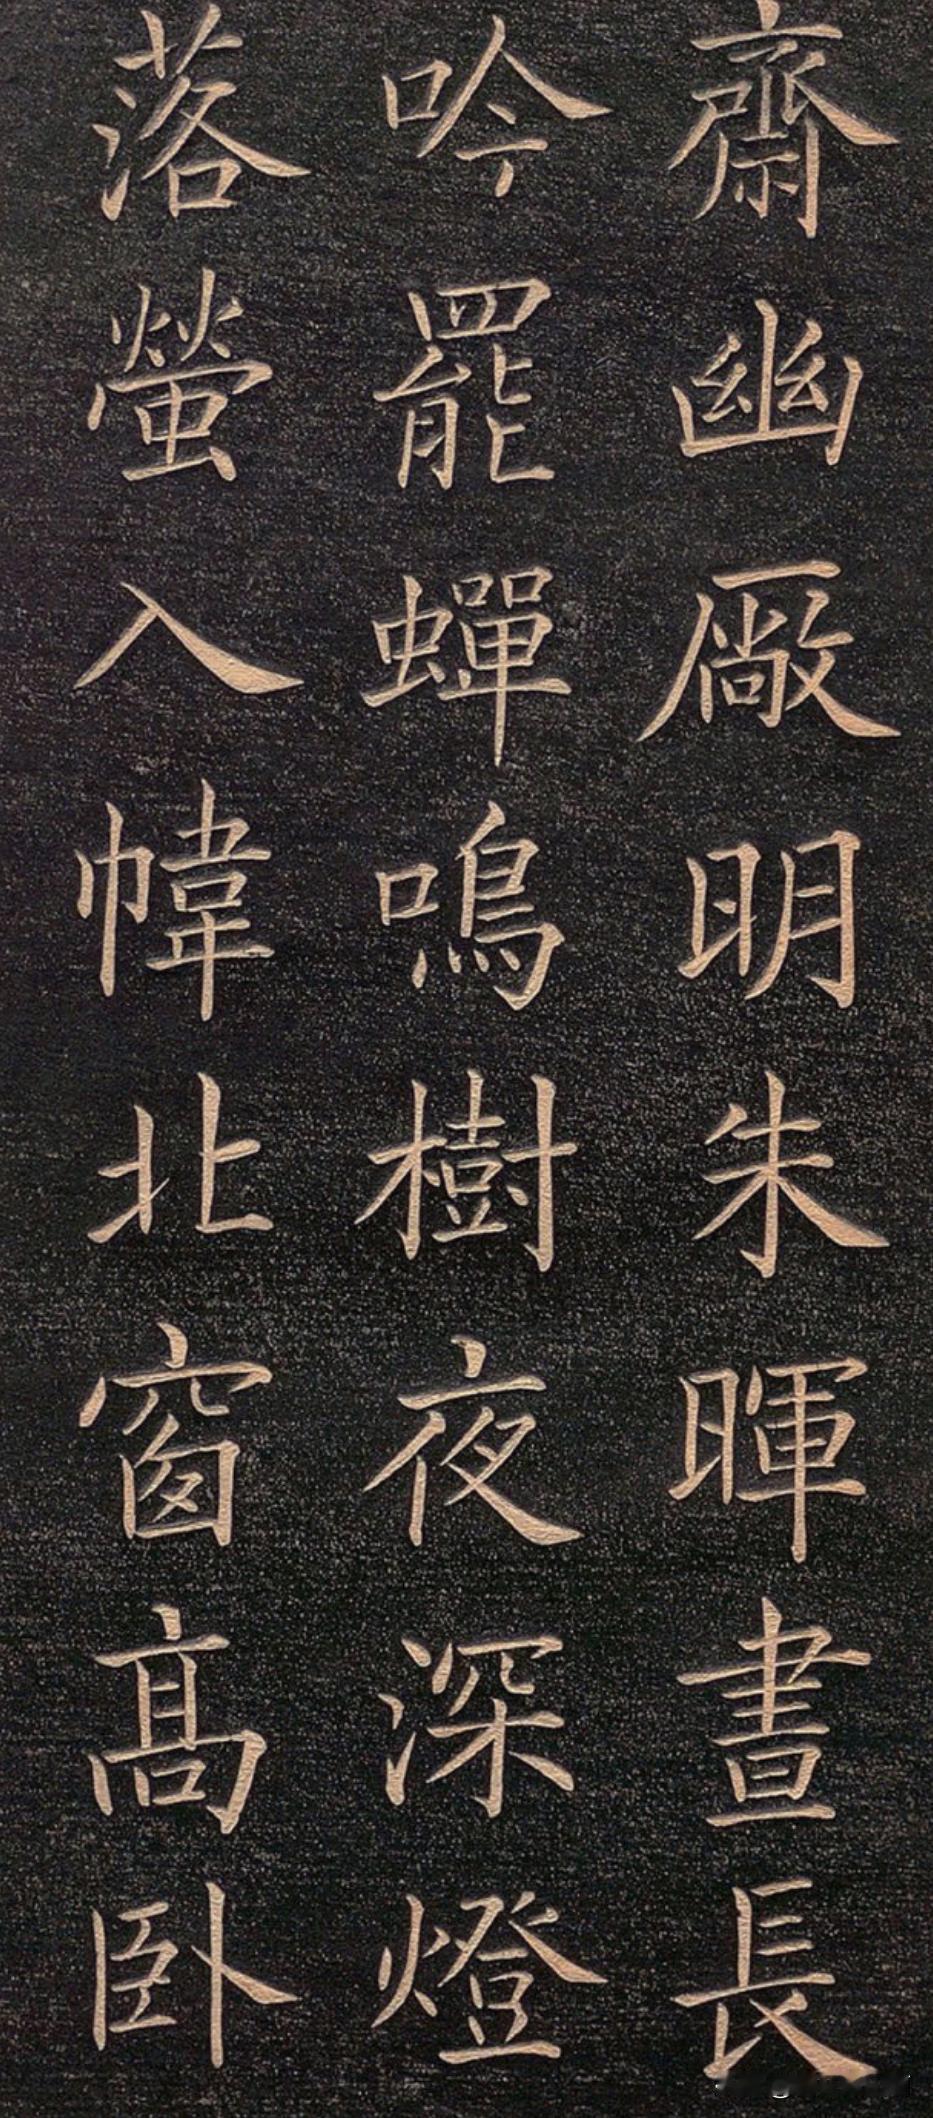 齋幽厰明朱暉晝長
吟罷蟬鳴樹夜深燈
落螢入幃北窗髙卧